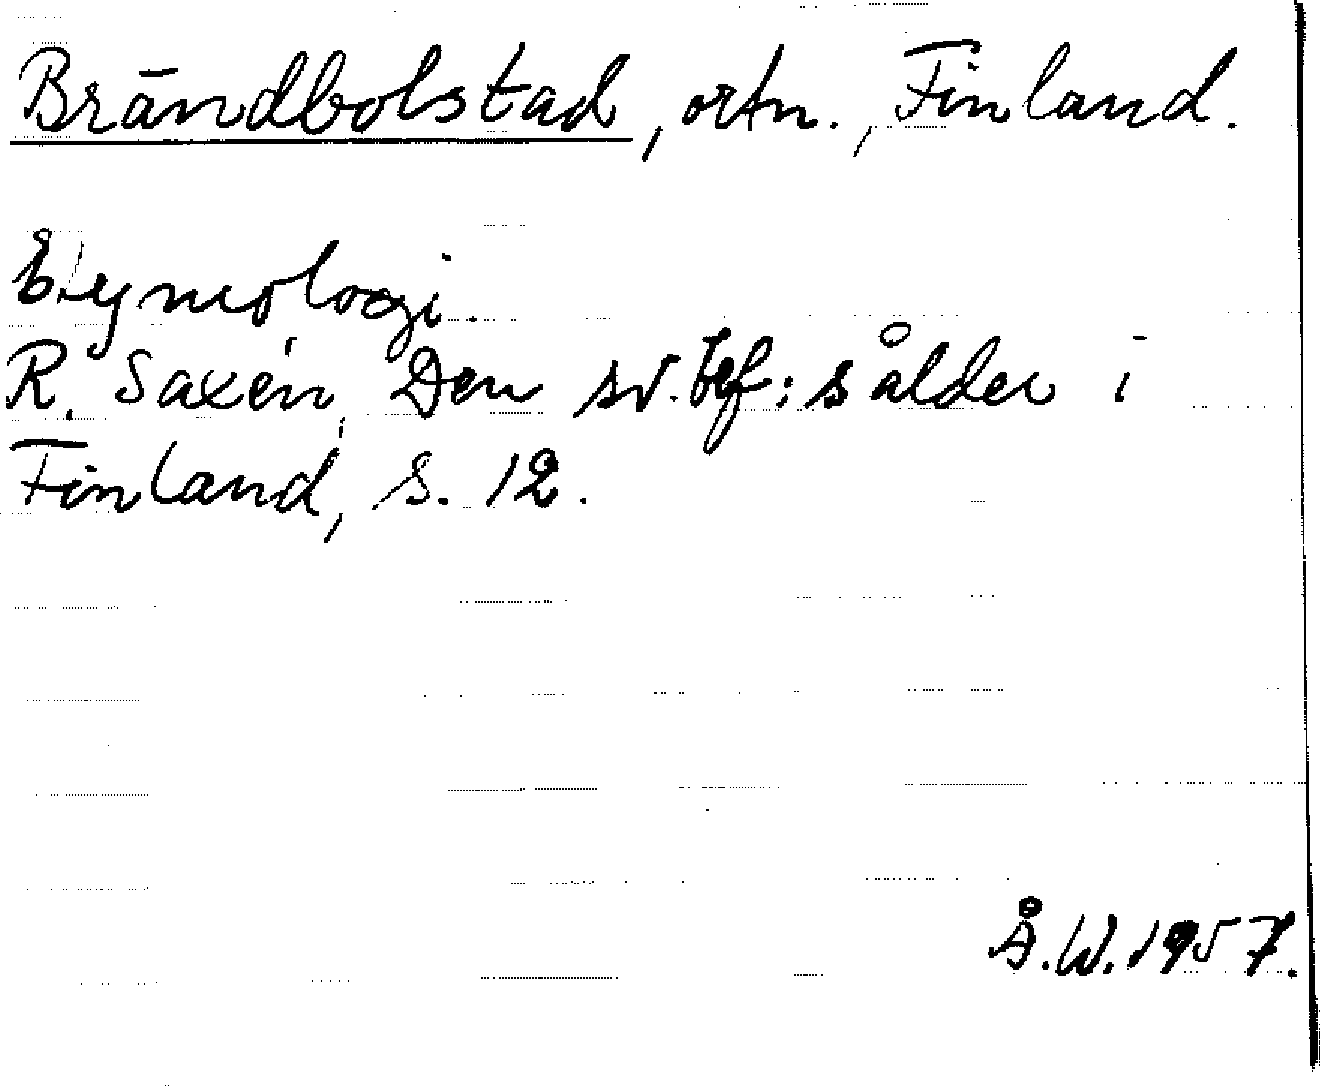 Brändbolstad, ortn., Finland.
Etymologi.
R. Saxén, Den sv. bef:s ålder i
Finland, s. 12.
Å.W. 1957.